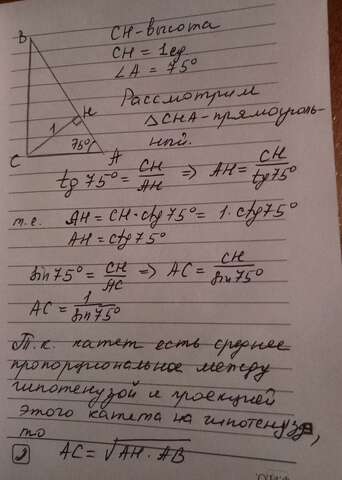 B
CH-высота
CH = 1ед
∠A = 75°
Рассмотрим
△CHA-прямоуголь-
ный.
H
1
75°
C
A
tg 75° = CH/AH ⇒ AH = CH/tg75°
т.е. AH = CH·ctg75° = 1·ctg75°
AH = ctg75°
sin75° = CH/AC ⇒ AC = CH/sin75°
AC = 1/sin75°
Т.к. катет есть среднее
пропорциональное между
гипотенузой и проекцией
этого катета на гипотенузу,
то
AC = √AH · AB